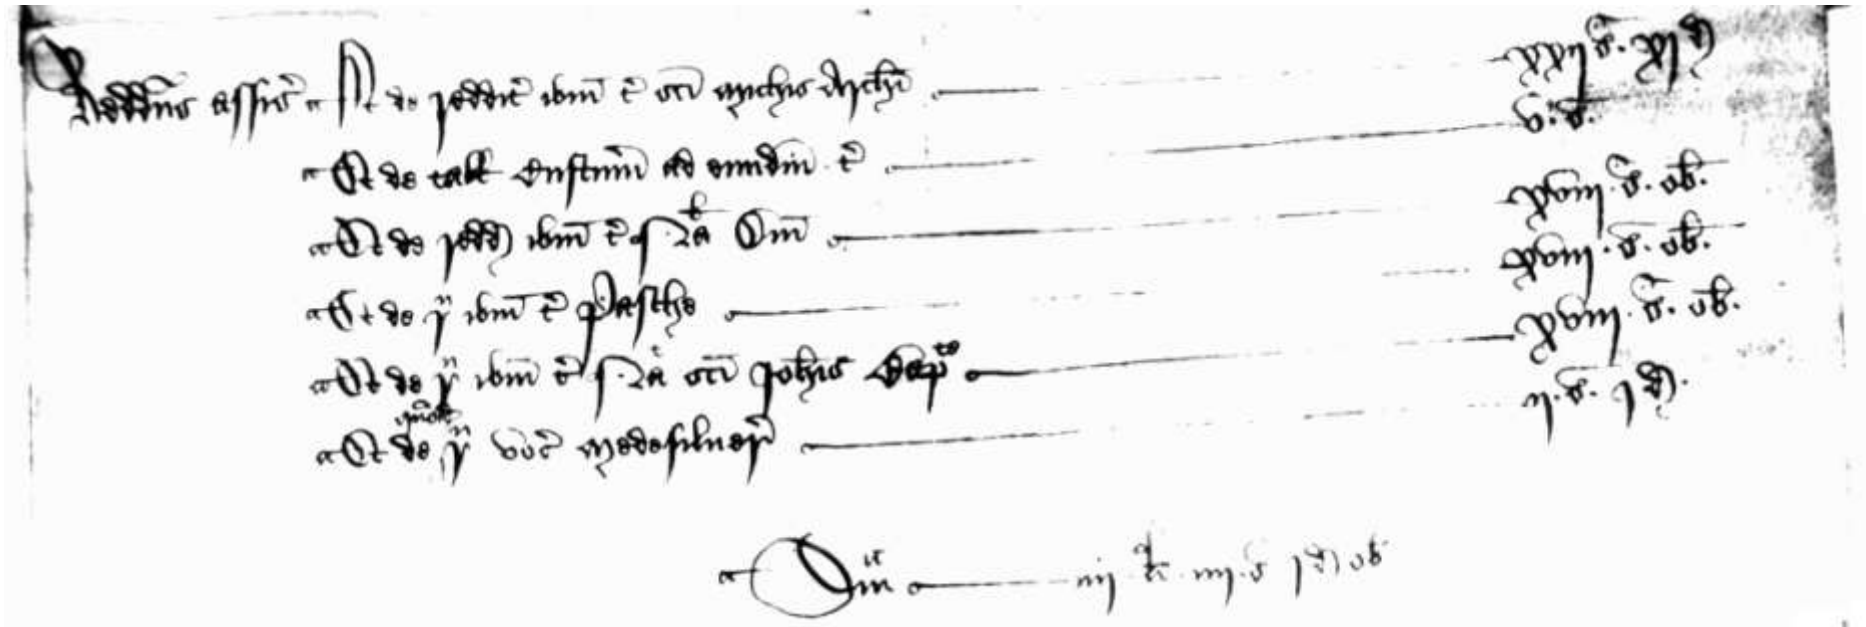 Redditus assis' Et de reddit' ibm t' sci Michis Archi xxij s. xj d
Et de tall Custum ad eundm t' v. s.
Et de redd ibm t' s. Na^l Dni xviij. s. ob.
Et de r' ibm t' Pasche xviij. s. ob.
Et de r' ibm t' s. Na^t sci Johis Bap^te xviij. s. ob.
Et de r' voc' Medesiluer' ij. s. j d.
Sm^a iiij li. iiij. s j d ob